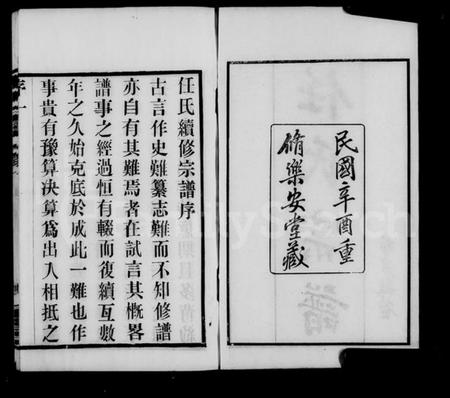 民國辛酉重
脩樂安堂藏
任氏續修宗譜序
古言作史難纂志難而不知修譜
亦自有其難焉者在試言其概畧
譜事之經過恒有輟而復續互數
年之久始克底於成此一難也作
事貴有豫算決算為出入相抵之
序一